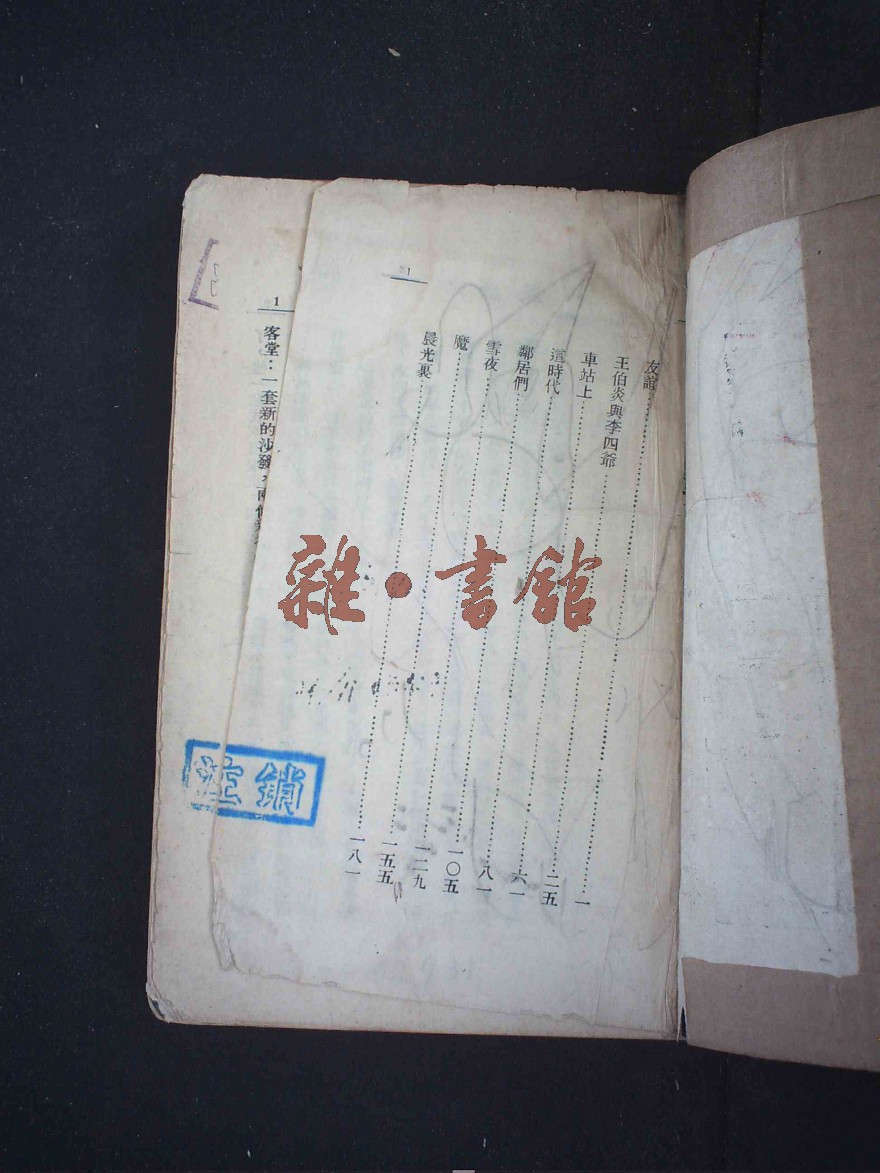 友誼……一
王伯炎與李四爺……二五
車站上……六一
這時代……八一
鄰居們……一〇五
雪夜……一二九
魔……一五五
晨光裏……一八一
1
客堂：一套新的沙發，
注銷
雜·書館